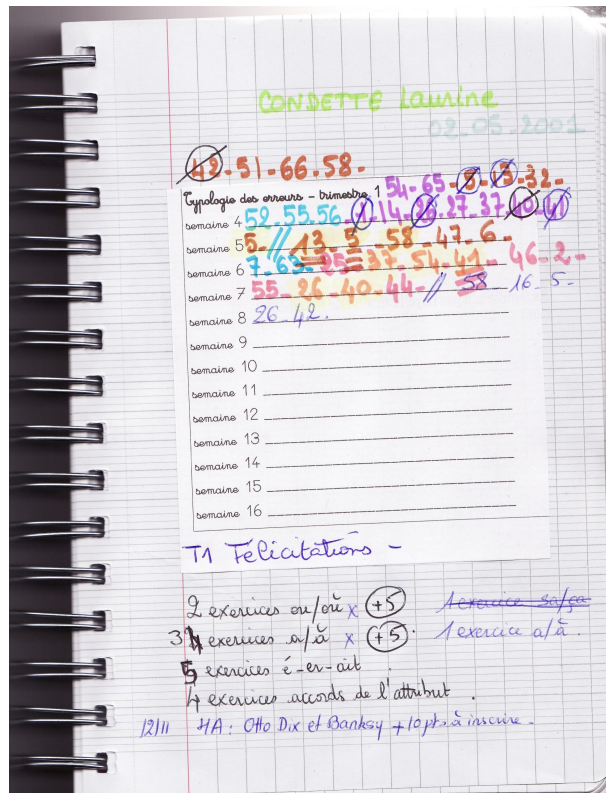 CONDETTE Laurine
02.05.2001
42-51-66.58-
54-65-5-13-32-
Typologie des erreurs – trimestre 1
semaine 4 52.55.56-1-14-26-27-37-40-41
semaine 5 5-//13-5-58-47-6-
semaine 6 7-63-25-37-54-41- 46-2-
semaine 7 55-26-40-44-//58-16-5-
semaine 8 26-42.
semaine 9
semaine 10
semaine 11
semaine 12
semaine 13
semaine 14
semaine 15
semaine 16
T1 Félicitations -
2 exercices ou/où x +5 1 exercice sa/ça
3 exercices a/à x +5. 1 exercice a/à.
5 exercices é-er-ait.
4 exercices accords de l'attribut.
12/11 HA: Otto Dix et Banksy +10pt. à inscrire.